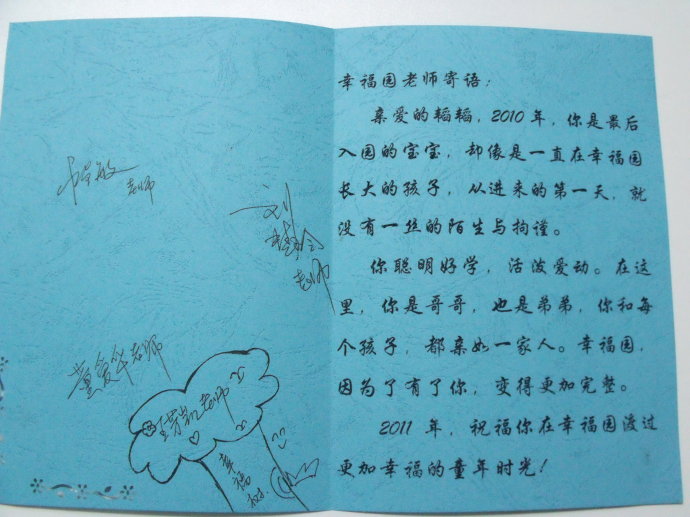 老师
刘
老师
童爱华老师
老师
幸福树
幸福园老师寄语：
亲爱的韬韬，2010 年，你是最后
入园的宝宝，却像是一直在幸福园
长大的孩子，从进来的第一天，就
没有一丝的陌生与拘谨。
你聪明好学，活泼爱动。在这
里，你是哥哥，也是弟弟，你和每
个孩子，都亲如一家人。幸福园，
因为了有了你，变得更加完整。
2011 年，祝福你在幸福园渡过
更加幸福的童年时光！